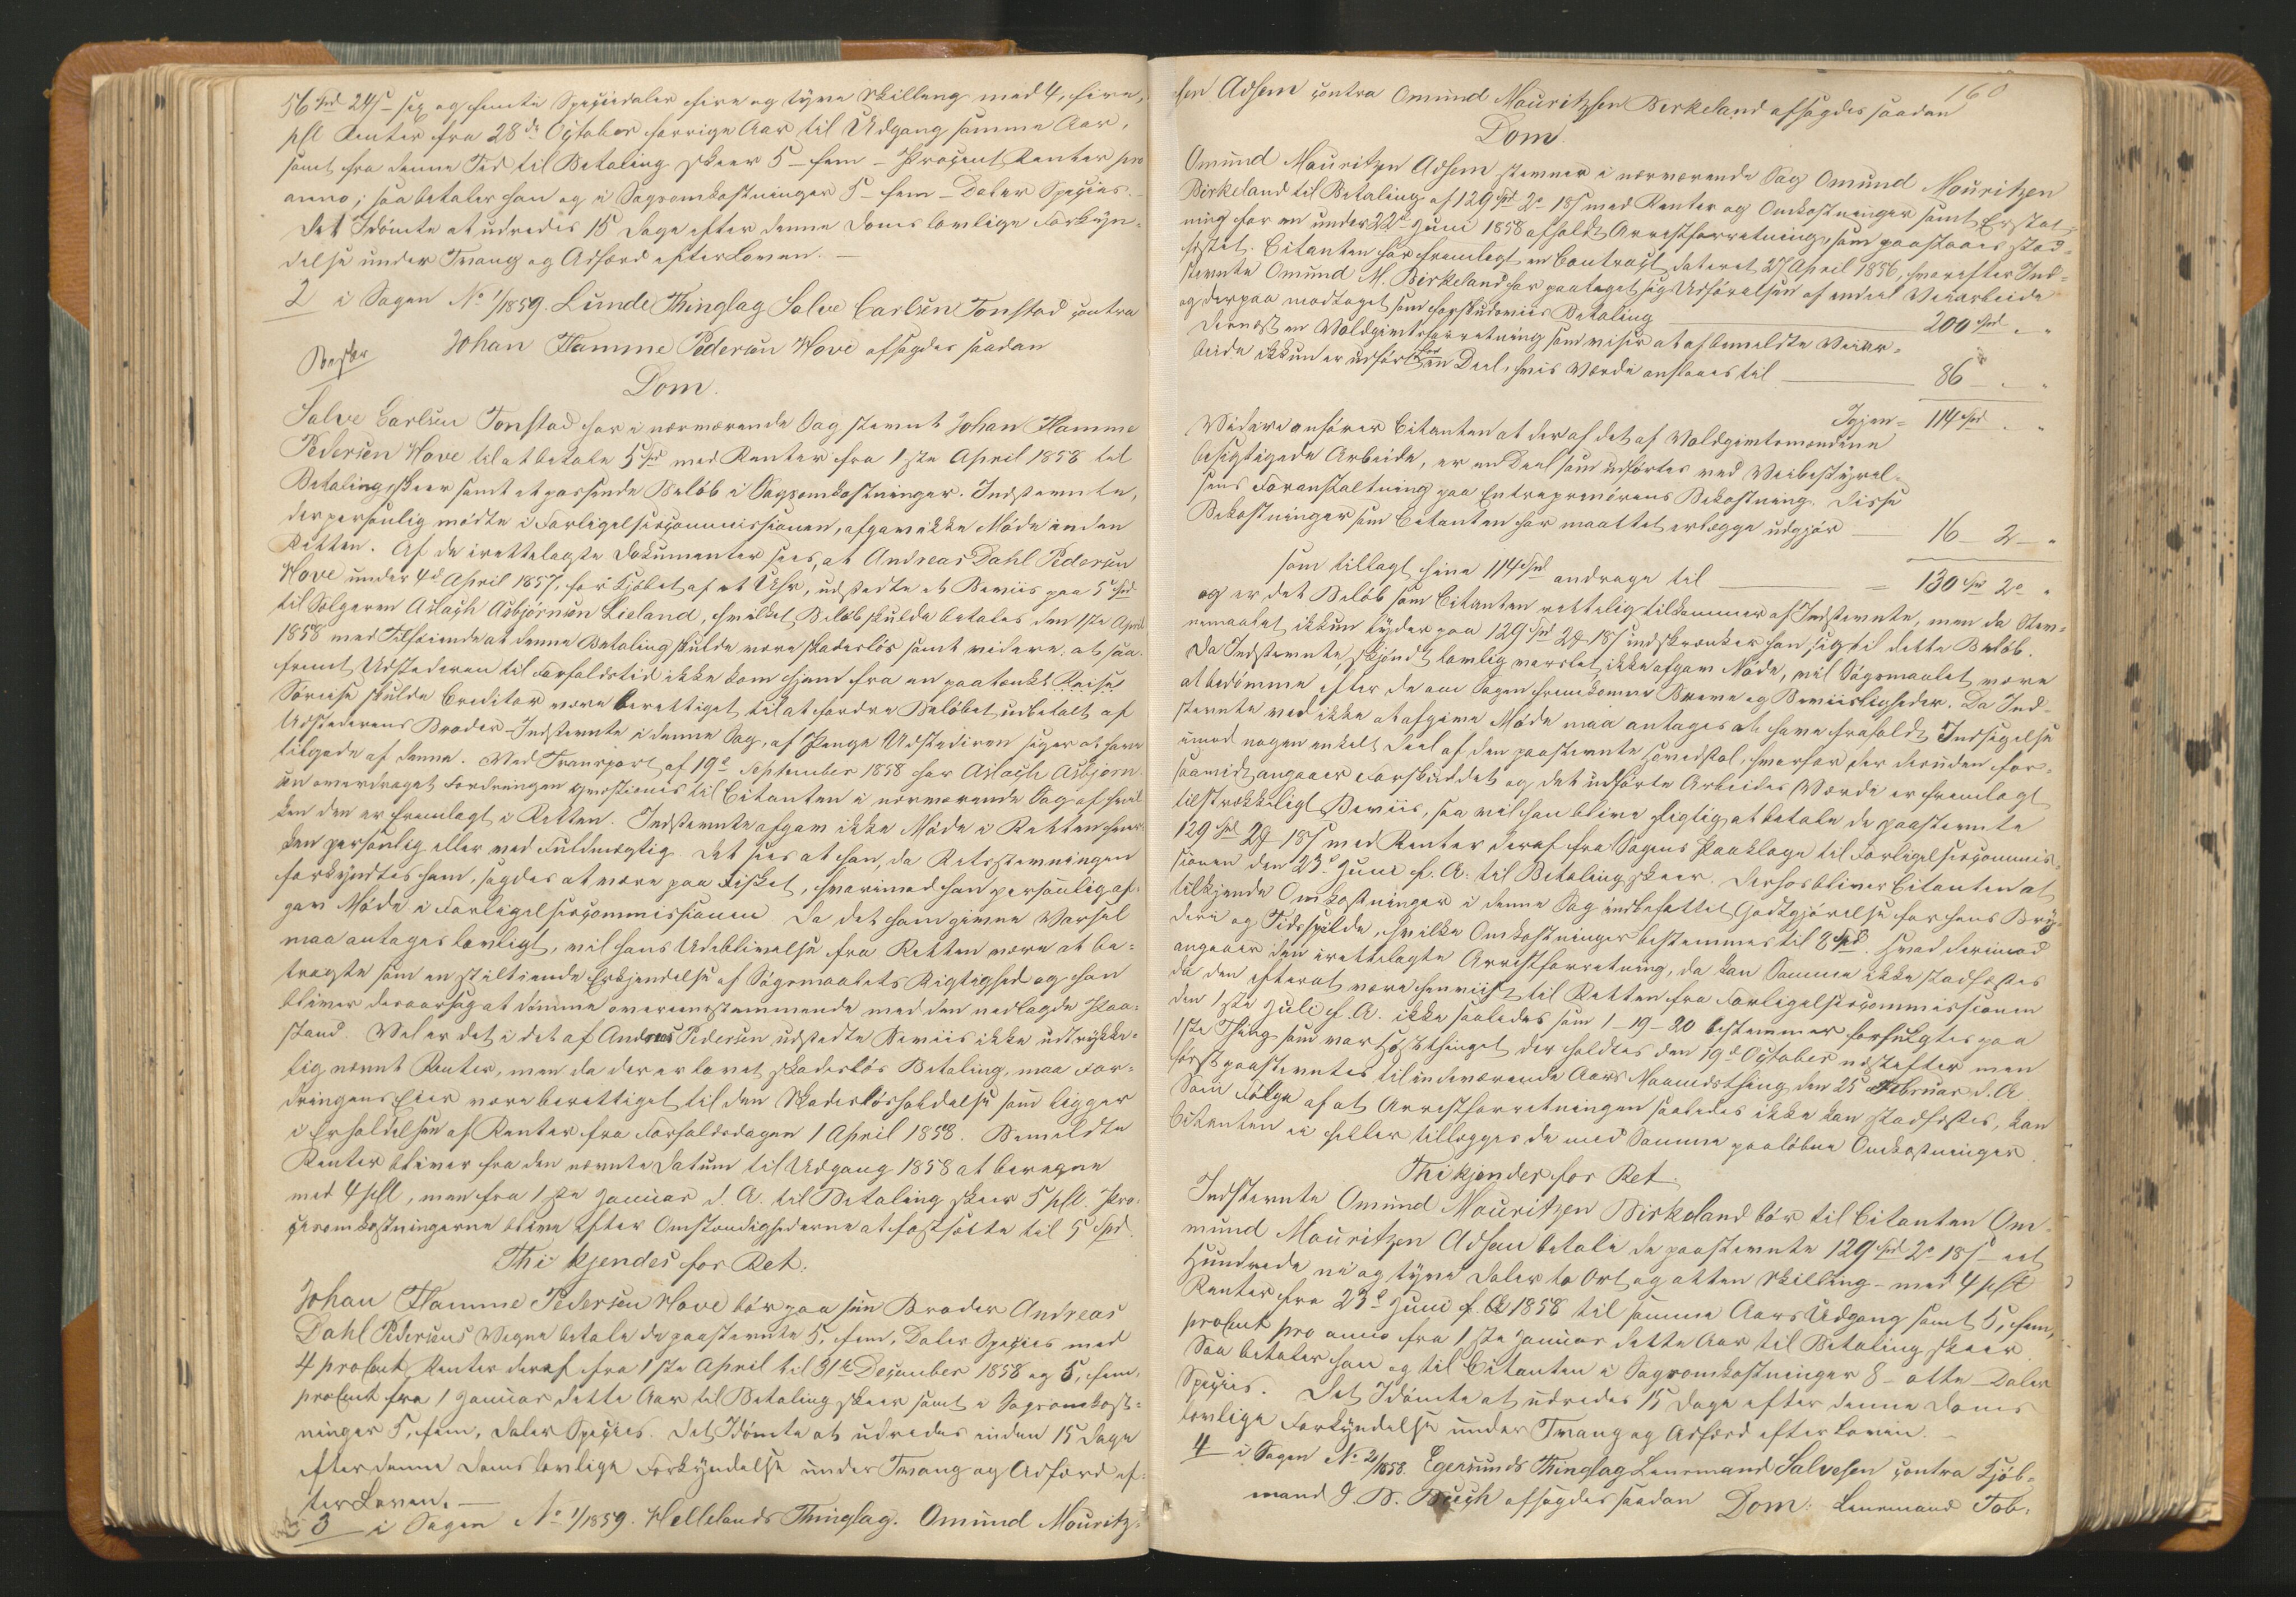 56 Spd 24 s – sex og femti Speciedaler fire og tyve Skilling med 4, fire,
pCt Renter fra 28de October forrige Aar til Udgang samme Aar,
samt fra denne Tid til Betaling skeer 5 – fem – Procent Renter pro
anno; saa betaler han og i Sagsomkostninger 5 – fem – Daler Species. –
Det Idömte at udredes 15 Dage efter denne Doms lovlige Forkyn-
delse under Tvang og Adfærd efter Loven. –
2 i Sagen No 1/1859. Lunde Thinglag Salve Carlsen Tonstad contra
Johan Hamme Pedersen Hove afsagdes saadan
Dom.
Salve Carlsen Tonstad har i nærværende Sag stevnt Johan Hamme
Pedersen Hove til at betale 5 Spd med Renter fra 1ste April 1858 til
Betaling skeer samt et passende Belöb i Sagsomkostninger. Indstevnte,
der personlig mödte i Forligelsescommissionen, afgav ikke Möde inden
Retten. Af de irettelagte Dokumenter sees, at Andreas Dahl Pedersen
Hove under 4de April 1857, for Kjöbet af et Uhr, udstedte et Beviis paa 5 Spd
til Sælgeren Aslach Asbjörnsen Lieland, hvilket Belöb skulde betales den 1ste April
1858 med Tilföiende at denne Betaling skulde være skadeslös samt videre, at saa-
fremt Udstederen til Forfaldstid ikke kom hjem fra en paatænkt Reise
skulde Creditor være berettiget til at fordre Belöbet udbetalt af
Udstederens Broder – Indstevnte i denne Sag, af Penge Udstederen siger at have
tilgode af denne. Med Transport af 19de September 1858 har Aslach Asbjørn-
sen overdraget Fordringen qvæstionis til Citanten i nærværende Sag af hvil-
ken den er fremlagt i Retten. Indstevnte afgav ikke Möde i Retten hver-
ken personlig eller ved Fuldmægtig. Det sees at han, da Retsstevningen
forkyndtes ham, sagdes at være paa Fisket, hvorimod han personlig af-
gav Möde i Forligelsescommissionen. Da det ham givne Varsel
maa antages lovligt, vil hans Udeblivelse fra Retten være at be-
tragte som en stiltiende Erkjendelse af Sögsmaalets Rigtighed og han
bliver desaarsag at dömme overeensstemmende med den nedlagde Paa-
stand. Vel er det i det af Andreas Pedersen udstedte Beviis ikke udtrykke-
lig nævnt Renter, men da der er lovet skadeslös Betaling, maa For-
dringens Eier være berettiget til den Skadeslösholdelse som ligger
i Erholdelsen af Renter fra Forfaldsdagen 1 April 1858. Bemeldte
Renter bliver fra den nævnte Datum til Udgang 1858 at beregne
med 4 pCt, men fra 1ste Januar d. A. til Betaling skeer 5 pCt. Pro-
cesomkostningerne blive efter Omstændighederne at fastsætte til 5 Spd.
Thi kjendes for Ret:
Johan Hamme Pedersen Hove bör paa sin Broder Andreas
Dahl Pedersens Vegne betale de paastevnte 5, fem, Daler Species med
4 proCent Renter deraf fra 1ste April til 31te December 1858 og 5, fem,
proCent fra 1 Januar dette Aar til Betaling skeer samt i Sagsomkost-
ninger 5, fem, Daler Species. Det Idömte at udredes inden 15 Dage
efter denne Doms lovlige Forkyndelse under Tvang og Adfærd ef-
ter Loven. –
3 i Sagen No 1/1859. Hellelands Thinglag. Omund Mouritz-
160
sen Adsem contra Omund Mouritzsen Birkeland afsagdes saadan
Dom.
Omund Mouritzen Adsem stevner i nærværende Sag Omund Mouritzen
Birkeland til Betaling af 129 Spd 2o 18 s med Renter og Omkostninger samt Erstat-
ning for en under 22de Juni 1858 afholdt Arrestforretning, som paastaaes stad-
fæstet. Citanten har fremlagt en Contract, dateret 27 April 1856, hvorefter Ind-
stevnte Omund M. Birkeland har paataget sig Udförelsen af endeel Veiarbeide
og derpaa modtaget som forskudsviis Betaling 200 Spd „ „
dernæst en Voldgivtsforretning som viser at af bemeldte Veiar-
beide ikkun er udfört en Deel, hvis Værdi anslaaes til 86 – „ „
Igjen = 114 Spd „ „
Videre anförer Citanten at der af det af Voldgivtsmændene
besigtigede Arbeide, er en Deel som udförtes ved Veibestyrel-
sens Foranstaltning paa Entrepreneurens Bekostning. Disse
Bekostninger som Citanten har maattet erlægge udgjör 16 – 2 – „
som tillagt hine 114 Spd andrage til = 130 Spd 2o „
og er det Belöb som Citanten rettelig tilkommer af Indstevnte, men da Stev-
nemaalet ikkun lyder paa 129 Spd 2o 18 s indskrænker han sig til dette Belöb.
Da Indstevnte, skjöndt lovlig varslet, ikke afgav Möde, vil Sögsmaalet være
at bedömme efter de om Sagen fremkomne Breve og Beviisligheder. Da Ind-
stevnte ved ikke at afgive Möde maa antages at have frafaldt Indsigelse
imod nogen enkelt Deel af den paastevnte Hovedstol, hvorfor der desuden for-
saavidt angaaer Forskuddet og det udförte Arbeides Værdi er fremlagt
tilstrækkeligt Beviis, saa vil han blive pligtig at betale de paastevnte
129 Spd 2o 18 s med Renter deraf fra Sagens Paaklage til Forligelsescommis-
sionen den 23de Juni f. A. til Betaling skeer. Derhos bliver Citanten at
tilkjende Omkostninger i denne Sag indbefattet Godtgjörelse for hans Bry-
deri og Tidsspilde, hvilke Omkostninger bestemmes til 8 Spd. Hvad derimod
angaaer den irettelagte Arrestforretning, da kan Samme ikke stadfæstes
da den efterat være henviist til Retten fra Forligelsescommissionen
den 1ste Juli f. A. ikke saaledes som 1-19-20 bestemmer forfulgtes paa
1ste Thing som var Höstthinget der holdtes den 19de October næstefter men
först paastevntes til indeværende Aars Maanedsthing den 25 Februar d. A.
Som Fölge af at Arrestforretningen saaledes ikke kan stadfæstes, kan
Citanten ei heller tillægges de med Samme paalöbne Omkostninger.
Thi kjendes for Ret:
Indstevnte Omund Mouritzen Birkeland bör til Citanten Om-
mund Mouritzen Adsem betale de paastevnte 129 Spd 2o 18 s – eet
Hundrede ni og tyve Daler to Ort og atten Skilling – med 4 pCt
Renter fra 23de Juni f. A 1858 til samme Aars Udgang samt 5, fem,
proCent pro anno fra 1ste Januar dette Aar til Betaling skeer.
Saa betaler han og til Citanten i Sagsomkostninger 8 – otte – Daler
Species. Det Idömte at udredes 15 Dage efter denne Doms
lovlige Forkyndelse under Tvang og Adfærd efter Loven. –
4 i Sagen No 2/1858. Egersunds Thinglag Lensmand Salvesen contra Kjöb-
mand J. B. Puch afsagdes saadan Dom: Lensmand Tob.